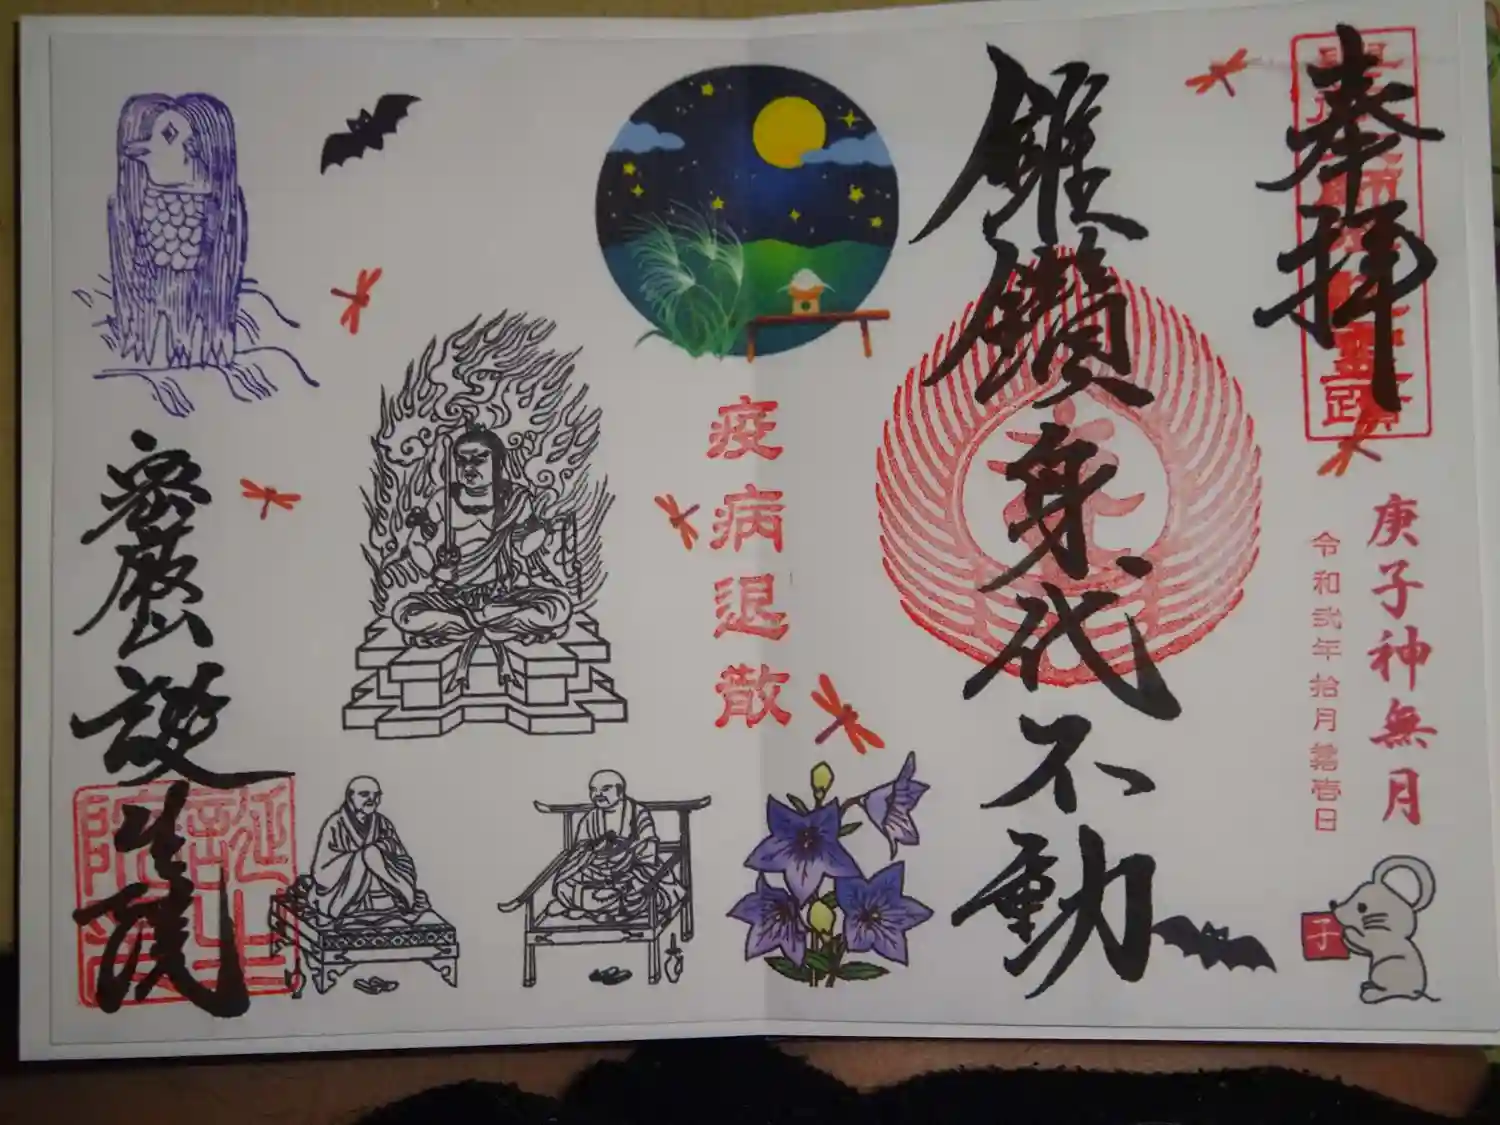 奉拝
庚子神無月
令和弐年拾月壱日
錐鑽身代不動
疫病退散
密厳山
誕生院
子